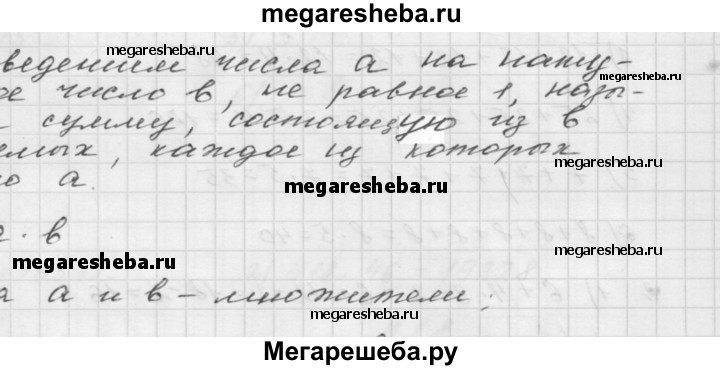 megaresheba.ru
megaresheba.ru
ведением числа a на нату-
megaresheba.ru
е число b, не равное 1, назы-
сумму, состоящую из b
емых, каждое из которых
megaresheba.ru
о a.
· b
megaresheba.ru
megaresheba.ru
а a и b – множители;
megaresheba.ru
Мегарешеба.ру